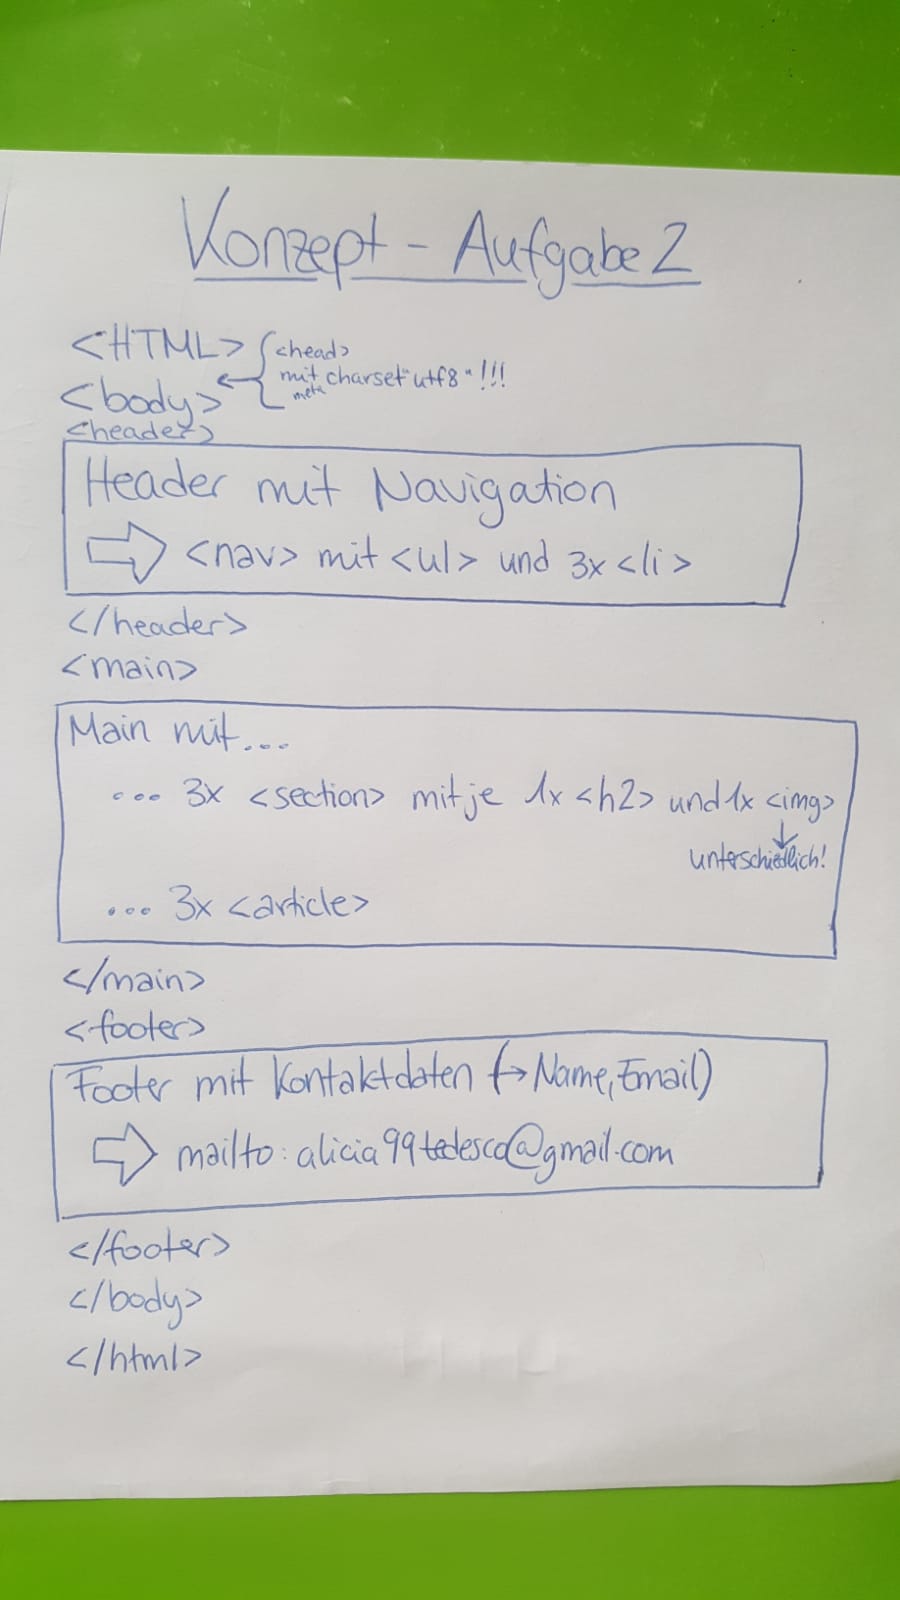 Konzept - Aufgabe 2
<HTML>
<head>
mit charset "utf8" !!!
meta
<body>
<header>
Header mit Navigation
<nav> mit <ul> und 3x <li>
</header>
<main>
Main mit...
... 3x <section> mit je 1x <h2> und 1x <img>
unterschiedlich!
... 3x <article>
</main>
<footer>
Footer mit Kontaktdaten (→ Name, Email)
mailto: alicia99tedesco@gmail.com
</footer>
</body>
</html>